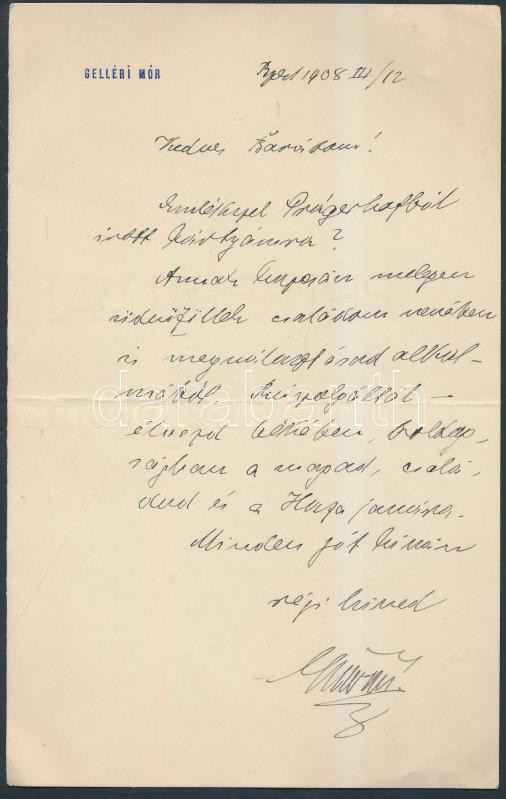 GELLÉRI MÓR
Bpest 1908 III/12
Kedves Barátom!
Emlékszel Prágerhofból
írott kártyámra?
Annak kapcsán melegen
üdvözöllek családom nevében
is megválasztásod alkal-
mából. Kiszolgáltál –
élvezd békében, boldog-
ságban a magad, csalá-
dod és a Haza javára.
Minden jót kíván
régi híved
darabanth